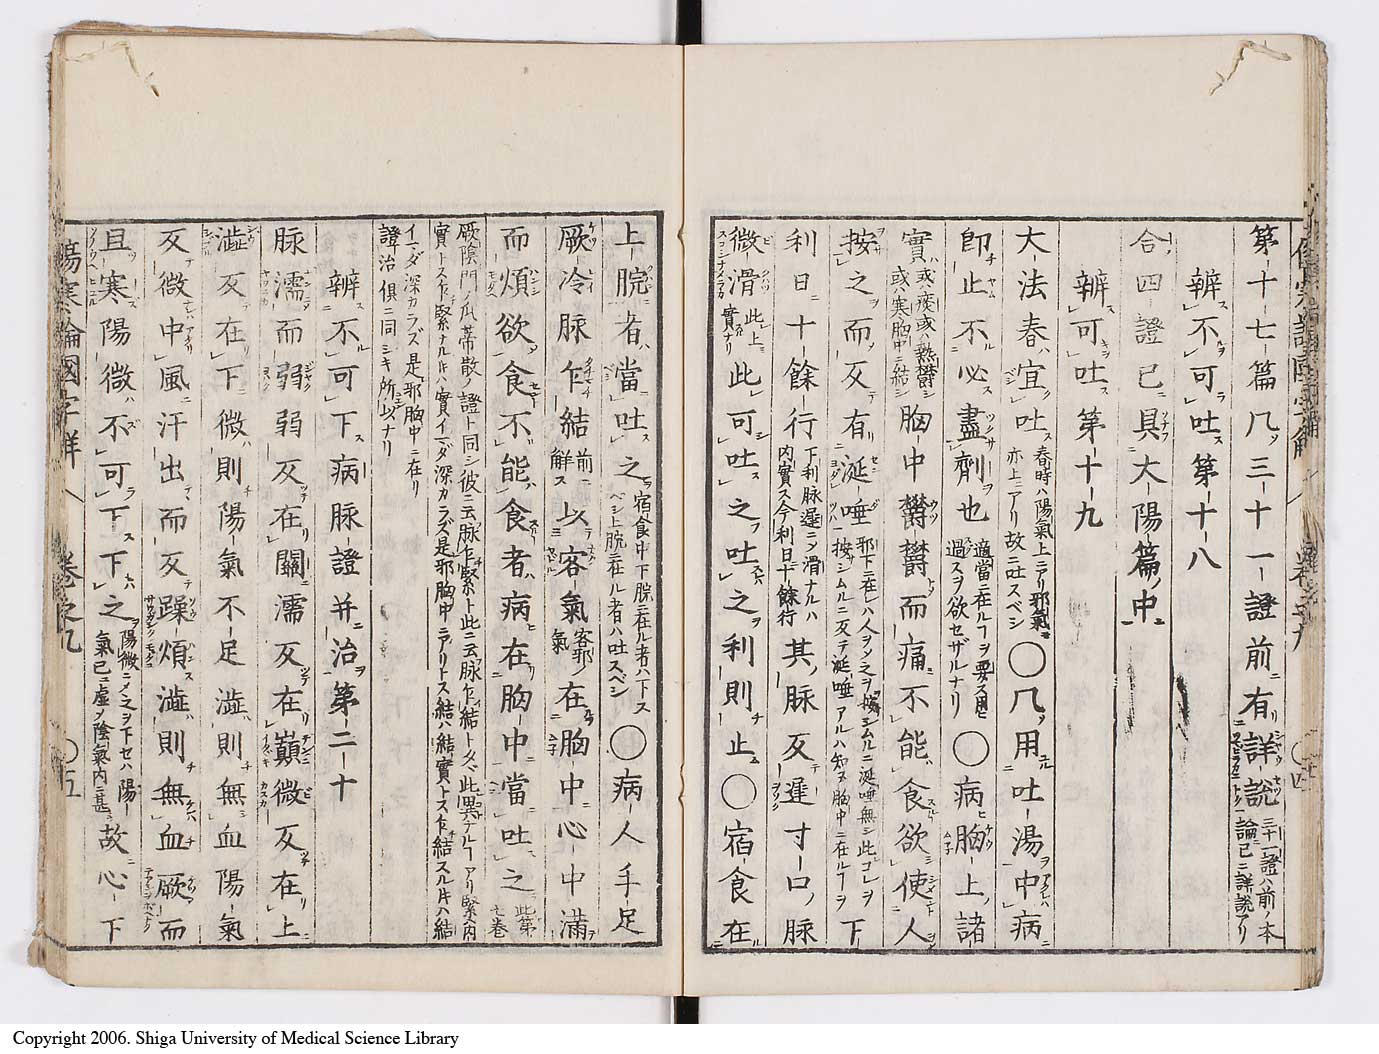 第十七篇凡三十一證前有詳說三十一證ハ前ノ本論已ニ詳說アリ
辨不可吐第十八
合四證已具大陽篇中
辨可吐第十九
大法春宜吐春時ハ陽氣上ニアリ邪氣モ亦上ニアリ故ニ吐スベシ○凡用吐湯中病
卽止不必盡劑也適當ニ在ルヿヲ要ス用ヒ過スヲ欲セザルナリ○病胸上諸
實或ハ痰或ハ熱欝シ或ハ寒胸中ニ結シ胸中欝欝而痛不能食欲使人
按之而反有涎唾邪下ニ在レハ人ヲノ之ヲ按シムルニ涎唾無シ此コレヲ按シムルニ反テ涎唾アルハ知ヌ胸中ニ在ルヿヲ下
利日十餘行下利脉遲ニノ滑ナルハ内實ス今利日十餘行其脉反遲寸口脉
微滑此上實ナリ此可吐之吐之利則止○宿食在
上脘者當吐之宿食中下脘ニ在ル者ハ下スベシ上脘ニ在ル者ハ吐スベシ○病人手足
厥冷脉乍結前ニ解ス以客氣客邪氣在胸中心中滿
而煩欲食不能食者病在胸中當吐之此第七卷
厥陰門ノ瓜蔕散ノ證ト同シ彼ニ云脉乍緊ト此ニ云脉乍結ト久ベ此異ナルヿアリ緊ハ内
實トス乍緊ナル片ハ實イマダ深カラズ是邪胸中ニアリトス結ハ結實トス乍結スル片ハ結
イマダ深カラズ是邪胸中ニ在リ
證治俱ニ同シキ所以ナリ
辨不可下病脉證并治第二十
脉濡而弱弱反在關濡反在巔微反在上
澁反在下微則陽氣不足澁則無血陽氣
反微中風汗出而反躁煩澁則無血厥而
且寒陽微不可下下之陽微ニノ之ヲ下セハ陽氣已ニ虛ノ陰氣内ニ甚シ故心下
傷寒論國字解 八 卷之九 ○五
Copyright 2006. Shiga University of Medical Science Library